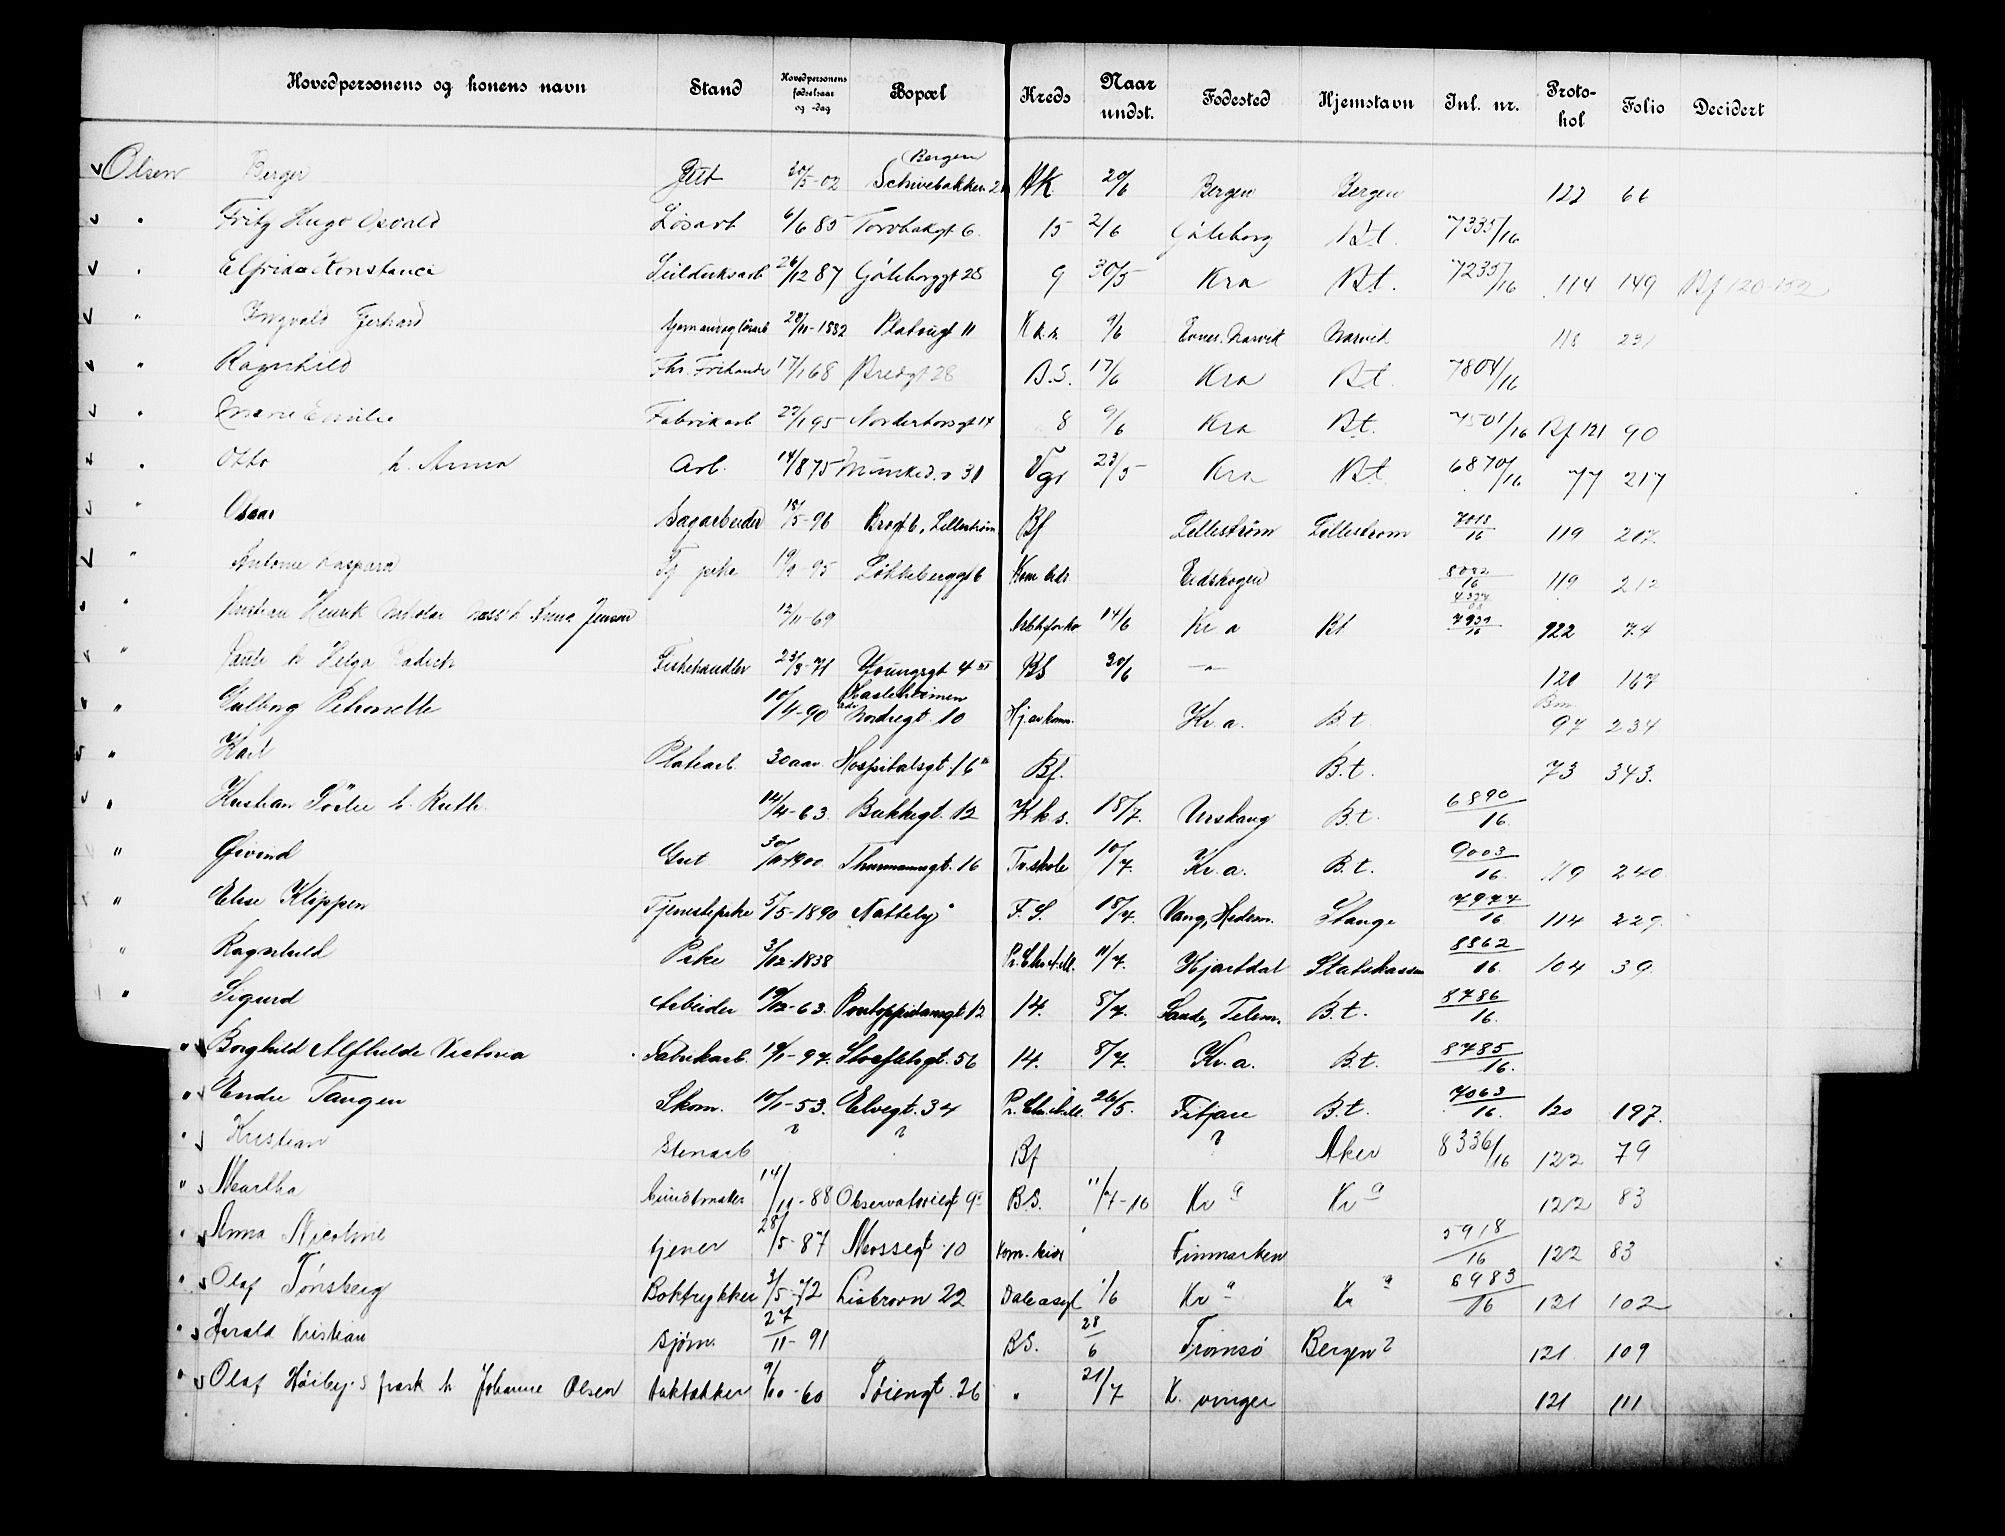 Hovedpersonens og konens navn | Stand | Hovedpersonens fødselsaar og -dag | Bopæl | Kreds | Naar undst. | Fødested | Hjemstavn | Inl. nr. | Protokol | Folio | Decidert
Olsen Berger | Gut | 20/5-02 | Bergen | HK | 20/6 | Bergen | Bergen | 122 | 66
" Fritz Hugo Osvald | Løsarb | 6/6 85 | Torvbakgt 6 | 15 | 2/6 | Gøteborg | B.t. | 7335/16
" Elfrida Konstance | 26/12 87 | Gøteborggt 28 | 9 | 30/5 | Kra | B.t. | 7235/16 | 114 | 149 | Bf 120-152
" Ingvald Gerhard | 28/11-1882 | Platougt 11 | 9/6 | Evenes. Narvik | Narvik | 118 | 231
" Ragnhild | 17/1 68 | Bredgt 28 | B.S. | 17/6 | Kra | B.t. | 7804/16
" Marie Emilie | Fabrikarb | 22/1 95 | Norderhovsgt 14 | 8 | 9/6 | Kra | B.t. | 7501/16 | Bf 121 | 90
" Otto h. Anna | Arb. | 14/8 75 | Munked.v 31 | Vgr | 23/5 | Kra | B.t. | 6870/16 | 77 | 217
" Oscar | Sagarbeider | 18/5-96 | Brogt 6, Lillestrøm | Bf | Lillestrøm | Lillestrøm | 7013/16 | 119 | 207
" Antonie Kaspara | Tj pike | 19/9-95 | Løkkeberggt 6 | Eidskogen | 8082/16 | 119 | 212
" Kristian Henrik Nikolai Næss h Anna Jensen | 12/11-69 | 14/6 | Kr a | Bt | 7939/16 | 122 | 74
" h Helga | Fiskehandler | 23/3-71 | Youngsgt 4 III | BS | 30/6 | -"- | 120 | 167
" Valborg Petronelle | 10/4-90 | Nordregt. 10 | Hjemkom. | Kr.a. | B.t | Bm 97 | 234
" Karl | Platearb. | 30 aar | Hospitalsgt. 16 II | Bf. | B.t. | 73 | 343.
" Kristian h. Ruth | 14/4-63 | Bakkegt. 12 | K k s. | 18/7. | Urskaug | B.t. | 6890/16
" Øivind | Gut | 30/10-1900 | Thurmannsgt. 16 | Tv.skole | 10/7. | Kr.a. | B.t. | 9003/16 | 119 | 240
" Else Klippen | Tjenestepike | 5/5-1890 | "Nattely" | F. S. | 18/7. | Vang, Hedem. | Stange | 7977/16 | 114 | 229.
" Ragnhild | Pike | 3/12-1838 | 11/7. | Hjartdal | Statskassen | 8862/16. | 104 | 39
" Sigurd | Arbeider | 19/12-63. | Pontoppidansgt. 12 | 14. | 8/7. | Sande, Telem. | B.t. | 8786/16.
" Borghild Alfhilde Victoria | Fabrikarb. | 19/1-97. | Stolfeldsgt. 56 | 14. | 8/7. | Kr.a. | B.t. | 8785/16.
" Endre Tangen | Skom. | 10/1-53. | Elvegt. 34 | 26/5. | Fitjare | B.t. | 7063/16. | 120 | 197.
" Kristian | Stenarb | ? | ? | Bf | ? | Aker | 8336/16 | 122 | 79
" Martha | 14/11-88 | Observatoriegt 9 | B.S. | 11/7-16 | Kr a | Kr a | 122 | 83
" Anna Nicoline | tjener | 28/5-87 | Mossegt. 10 | Finmarken | 5918/16 | 122 | 83
" Olaf Tønsberg | Boktrykker | 3/5-72 | Liabroen 22 | Dale asyl | 1/6 | Kr a | Kr a | 6983/16 | 121 | 102
" Harald Kristian | sjøm. | 27/11-91 | B.S. | 28/6 | Tromsø | Bergen? | 121 | 109
" Olaf Høiby.s frask h Johanne Olsen | taktækker | 9/10-60 | Tøiengt. 26 | " | 21/7 | K. vinger | 121 | 111